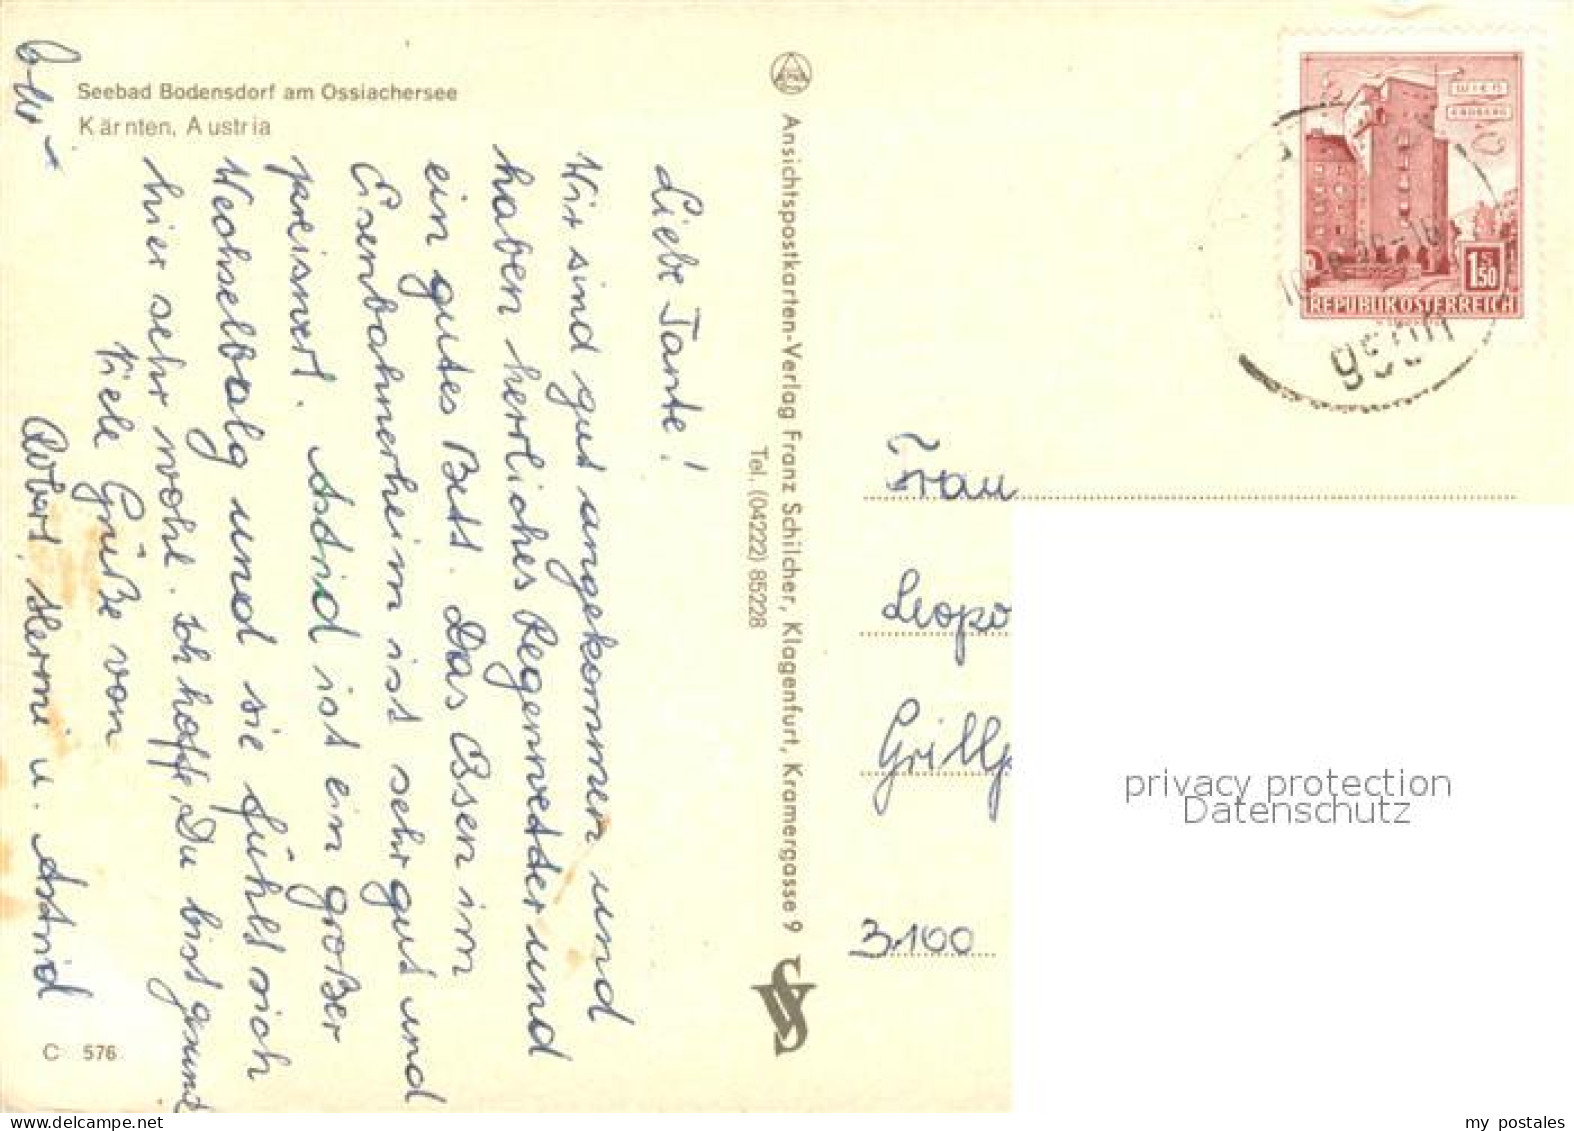 Seebad Bodensdorf am Ossiachersee
Kärnten, Austria
Liebe Tante!
Wir sind gut angekommen und
haben herrliches Regenwetter und
ein gutes Bett. Das Essen im
Eisenbahnerheim ist sehr gut und
preiswert. Astrid ist ein großer
Wechselbalg und sie fühlt sich
hier sehr wohl. Ich hoffe, Du bist gsund
Viele Grüße von
Robert, Hermi u. Astrid
C 576
Ansichtspostkarten-Verlag Franz Schilcher, Klagenfurt, Kramergasse 9
Tel. (04222) 85228
WIEN
ERDBERG
1.50
S
REPUBLIK ÖSTERREICH
Frau
Leopo
Grillp
3100
privacy protection
Datenschutz
my postales